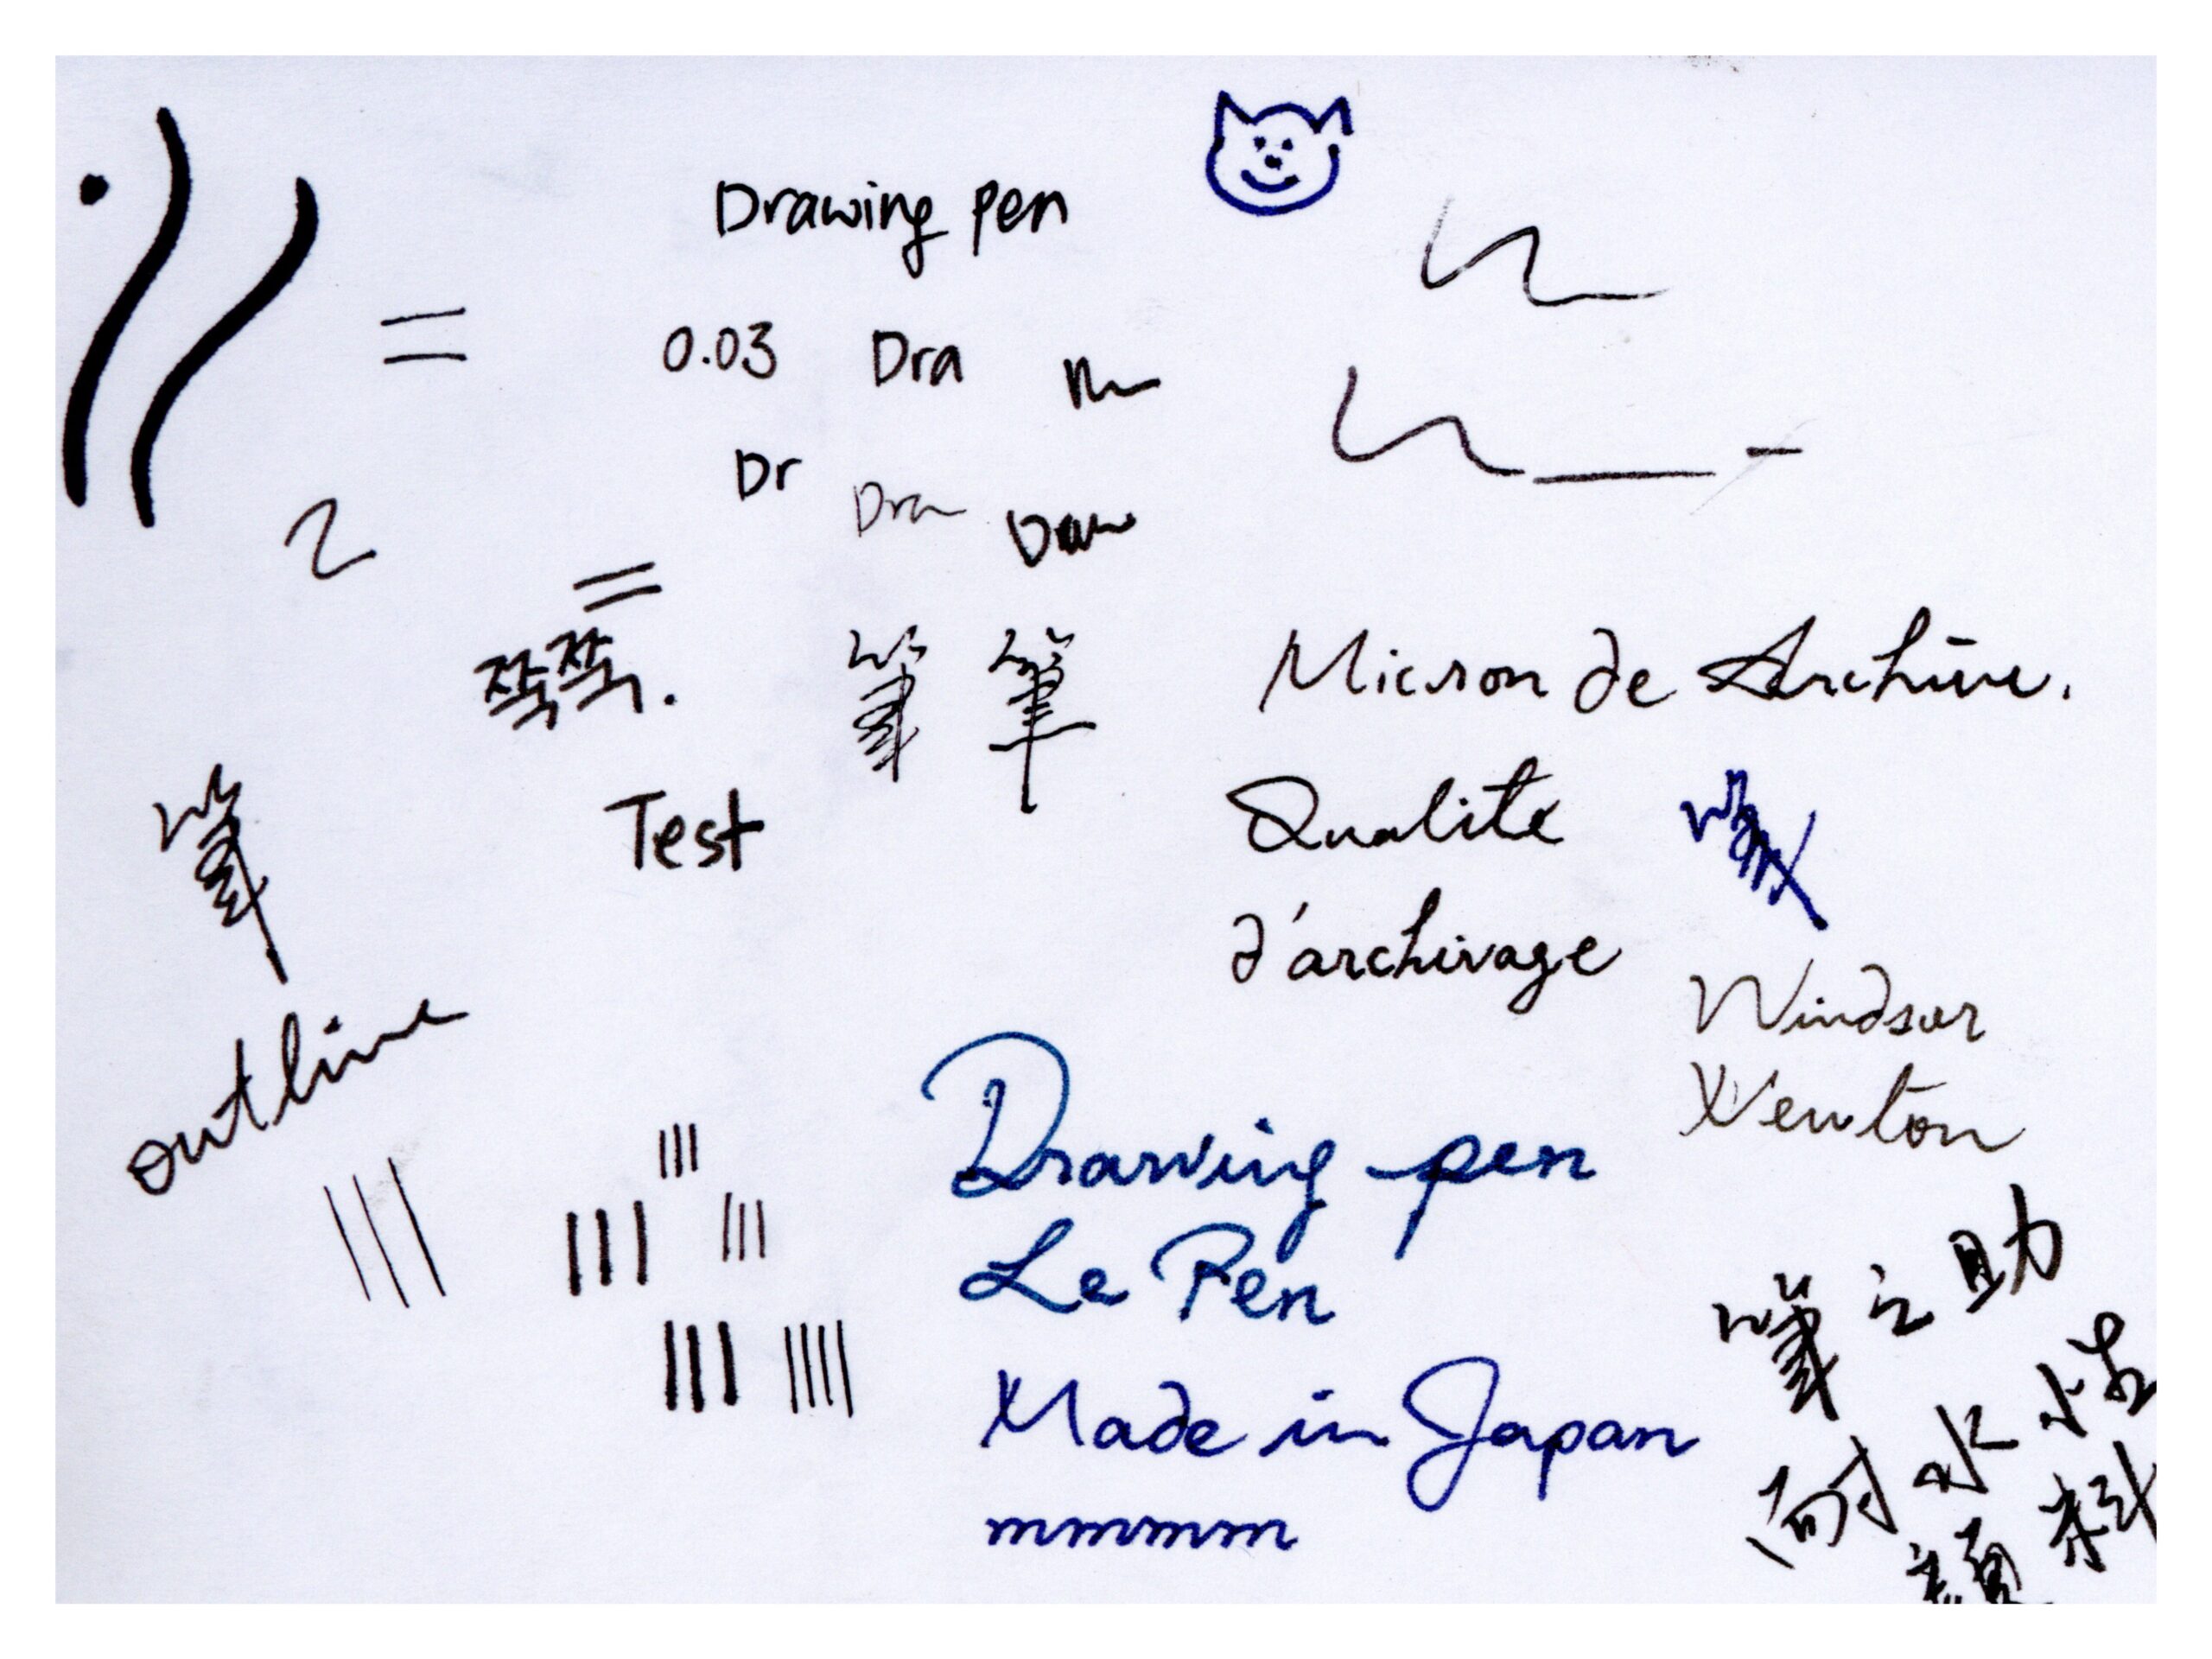 Drawing pen
0.03 Dra
Dr Dra Draw
쫙쫙.
筆 筆
Micron de Archive.
Test
Qualité
d'archivage
筆
筆
outline
Windsor
Newton
Drawing pen
Le Pen
Made in Japan
mmmmm
筆之助
耐水性
顔料